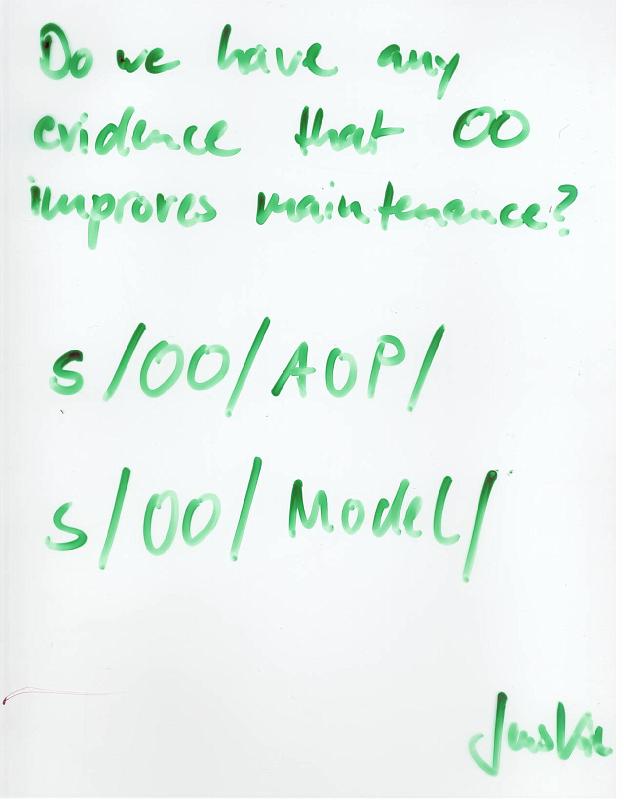 Do we have any
evidence that OO
improves maintenance?
s/OO/AOP/
s/OO/Model/